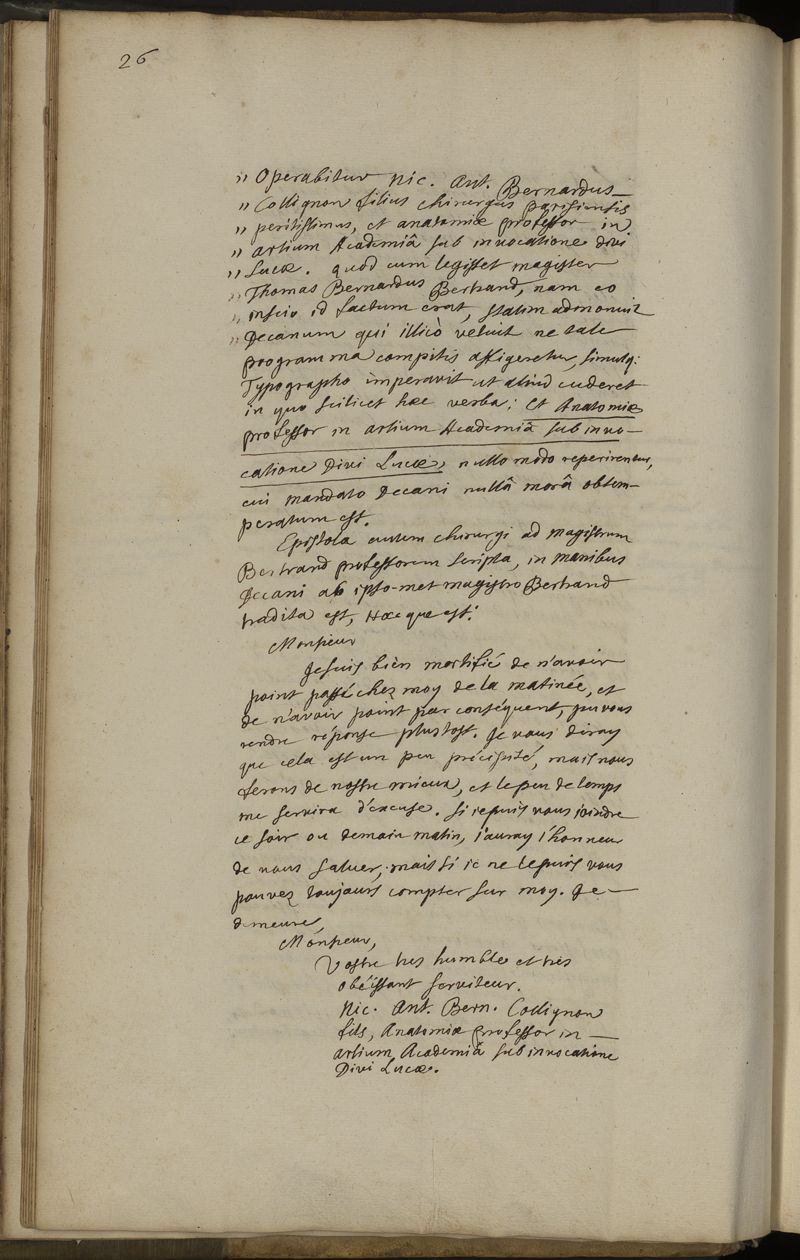 26
" Operabitur Nic. Ant. Bernardus
" Collignon filius chirurgus parisiensis
" peritissimus, et anatomiæ professor in
" artium Academiâ sub invocatione divi
" Lucæ. quod cum legisset magister
" Thomas Bernardus Bertrand, nam eo
" inscio id factum erat, statim admonuit
" Decanum qui illicò vetuit ne tale
programma compitis affigeretur, simulq:
Typographo imperavit ut aliud cuderet
in quo scilicet hæc verba; et Anatomiæ
professor in artium Academiâ sub invo-
catione Divi Lucæ, nullo modo reperirentur,
cui mandato Decani nullâ morâ obtem-
peratum est.
Epistola autem chirurgi ad magistrum
Bertrand professorem scripta, in manibus
Decani ab ipso-met magistro Bertrand
tradita est, Hæcque est:
Monsieur
Je suis bien mortifié de n'avoir
point passé chez moy de la matinée, et
de n'avoir point par conséquent, pu vous
rendre réponse plustost. Je vous diray
que cela est un peu précipité, mais nous
ferons de nostre mieux, et le peu de temps
me servira d'excuse. Si je puis vous joindre
ce soir ou demain matin, j'auray l'honneur
de vous saluer, mais si je ne le puis vous
pouvez toujours compter sur moy. Je
demeure,
Monsieur,
Vostre tres humble et tres
obéissant serviteur.
Nic. Ant. Bern. Collignon
fils, Anatomiæ professor in
artium Academiâ sub invocatione
Divi Lucæ.